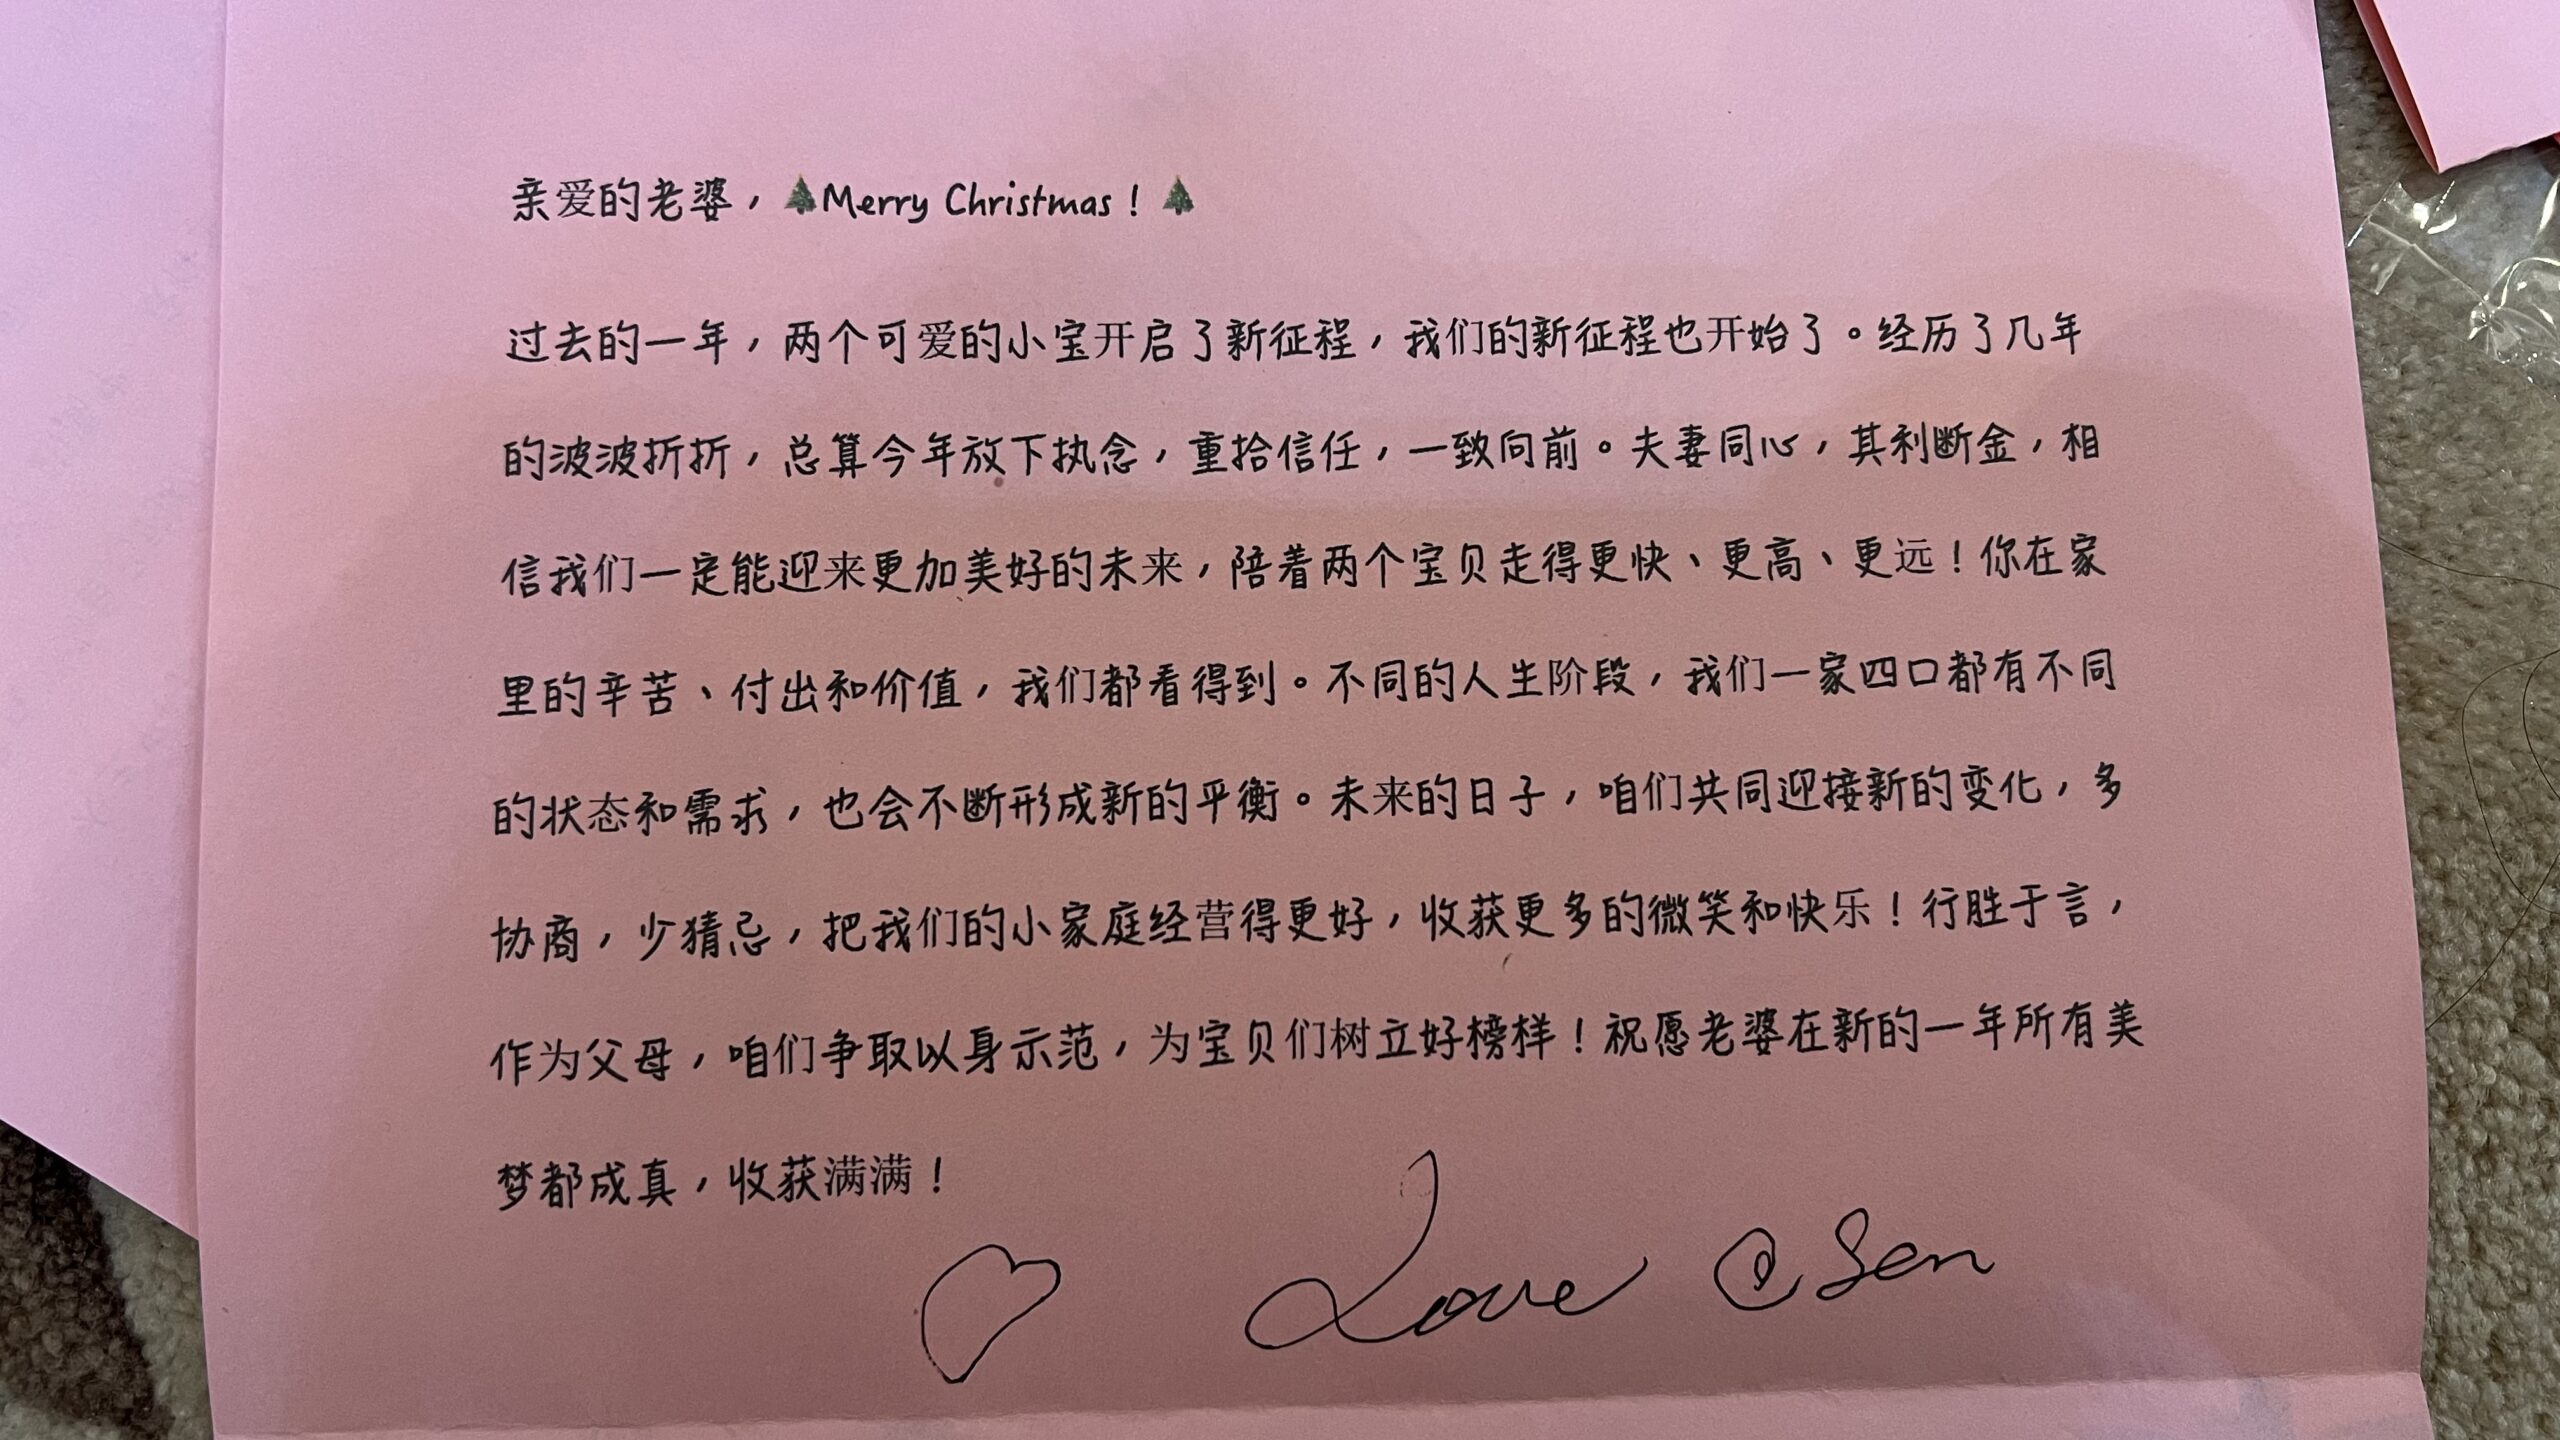 亲爱的老婆，🎄Merry Christmas！🎄
过去的一年，两个可爱的小宝开启了新征程，我们的新征程也开始了。经历了几年
的波波折折，总算今年放下执念，重拾信任，一致向前。夫妻同心，其利断金，相
信我们一定能迎来更加美好的未来，陪着两个宝贝走得更快、更高、更远！你在家
里的辛苦、付出和价值，我们都看得到。不同的人生阶段，我们一家四口都有不同
的状态和需求，也会不断形成新的平衡。未来的日子，咱们共同迎接新的变化，多
协商，少猜忌，把我们的小家庭经营得更好，收获更多的微笑和快乐！行胜于言，
作为父母，咱们争取以身示范，为宝贝们树立好榜样！祝愿老婆在新的一年所有美
梦都成真，收获满满！
Love @Sen